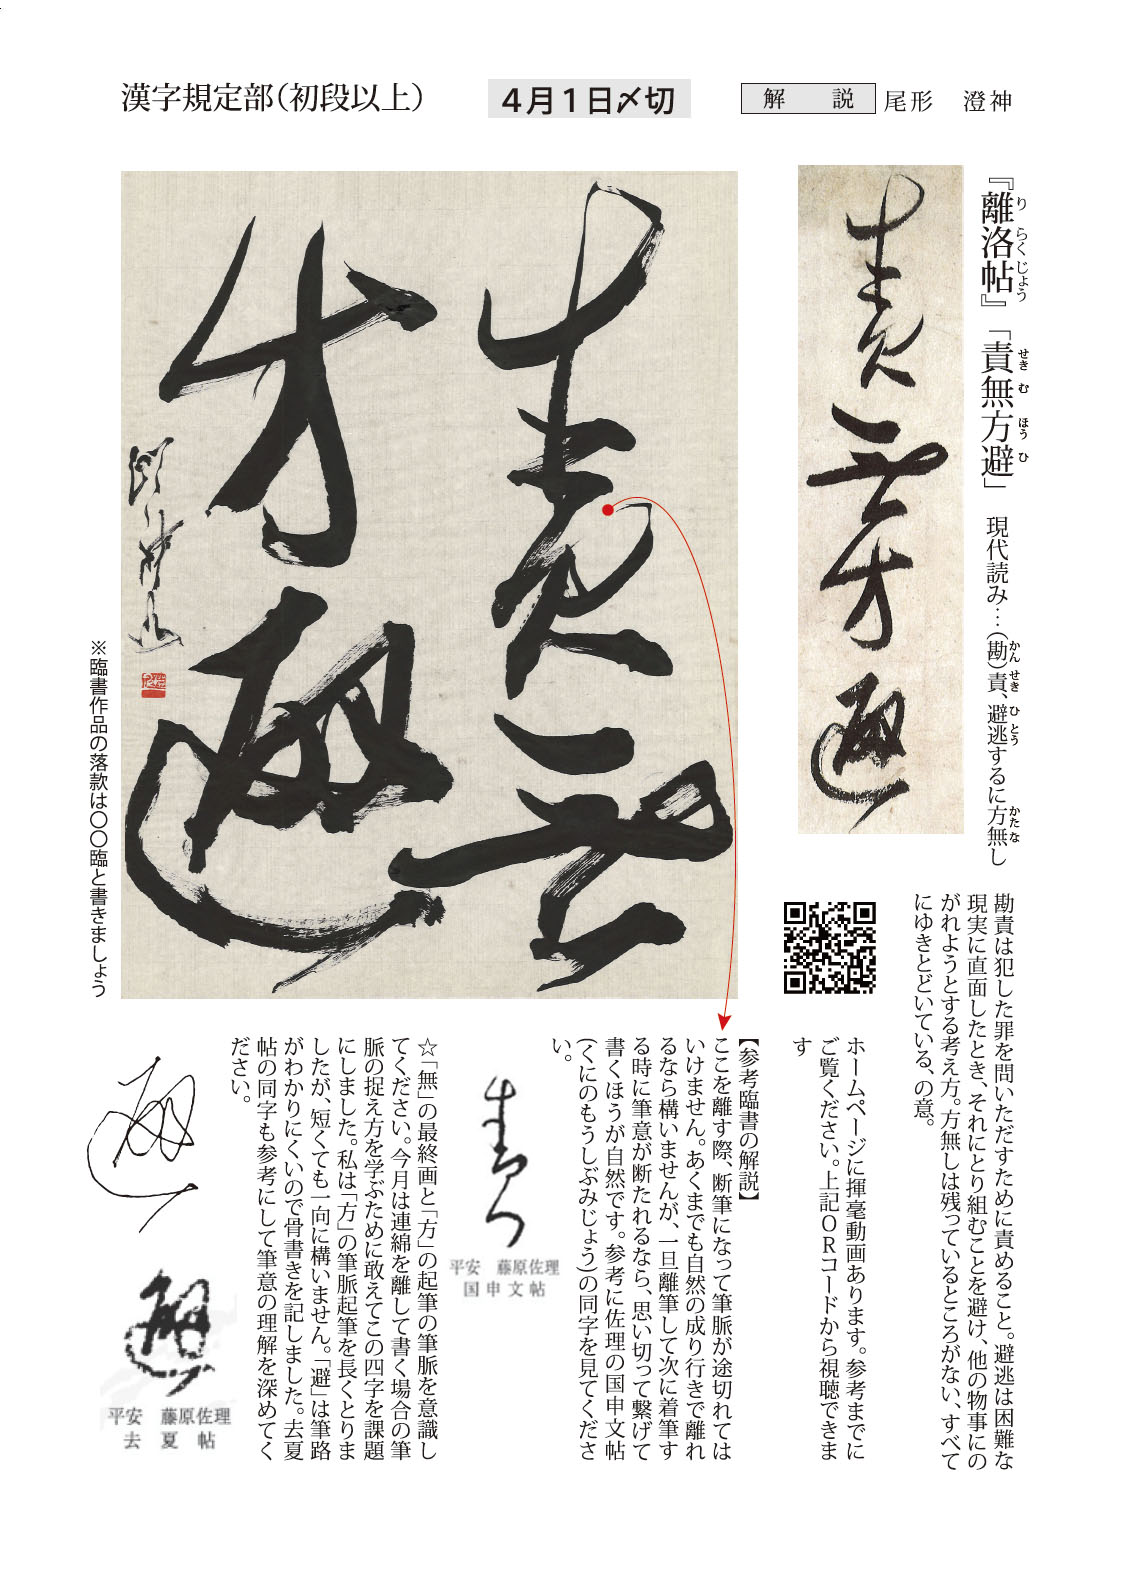 漢字規定部（初段以上）
４月１日〆切
解　説
尾形　澄神
『離洛帖』「責無方避」　現代読み…（勘）責、避逃するに方無し
り　らくじょう　せき　む　ほう　ひ　かん　せき　ひ　とう　かた　な
責無方避
勘責は犯した罪を問いただすために責めること。避逃は困難な
現実に直面したとき、それにとり組むことを避け、他の物事にの
がれようとする考え方。方無しは残っているところがない、すべて
にゆきとどいている、の意。
ホームページに揮毫動画あります。参考までに
ご覧ください。上記ＱＲコードから視聴できま
す
責無
方避
※臨書作品の落款は〇〇臨と書きましょう
【参考臨書の解説】
ここを離す際、断筆になって筆脈が途切れては
いけません。あくまでも自然の成り行きで離れ
るなら構いませんが、一旦離筆して次に着筆す
る時に筆意が断たれるなら、思い切って繋げて
書くほうが自然です。参考に佐理の国申文帖
（くにのもうしぶみじょう）の同字を見てくださ
い。
責
平安　藤原佐理
国申文帖
☆「無」の最終画と「方」の起筆の筆脈を意識し
てください。今月は連綿を離して書く場合の筆
脈の捉え方を学ぶために敢えてこの四字を課題
にしました。私は「方」の筆脈起筆を長くとりま
したが、短くても一向に構いません。「避」は筆路
がわかりにくいので骨書きを記しました。去夏
帖の同字も参考にして筆意の理解を深めてく
ださい。
避
避
平安　藤原佐理
去夏帖